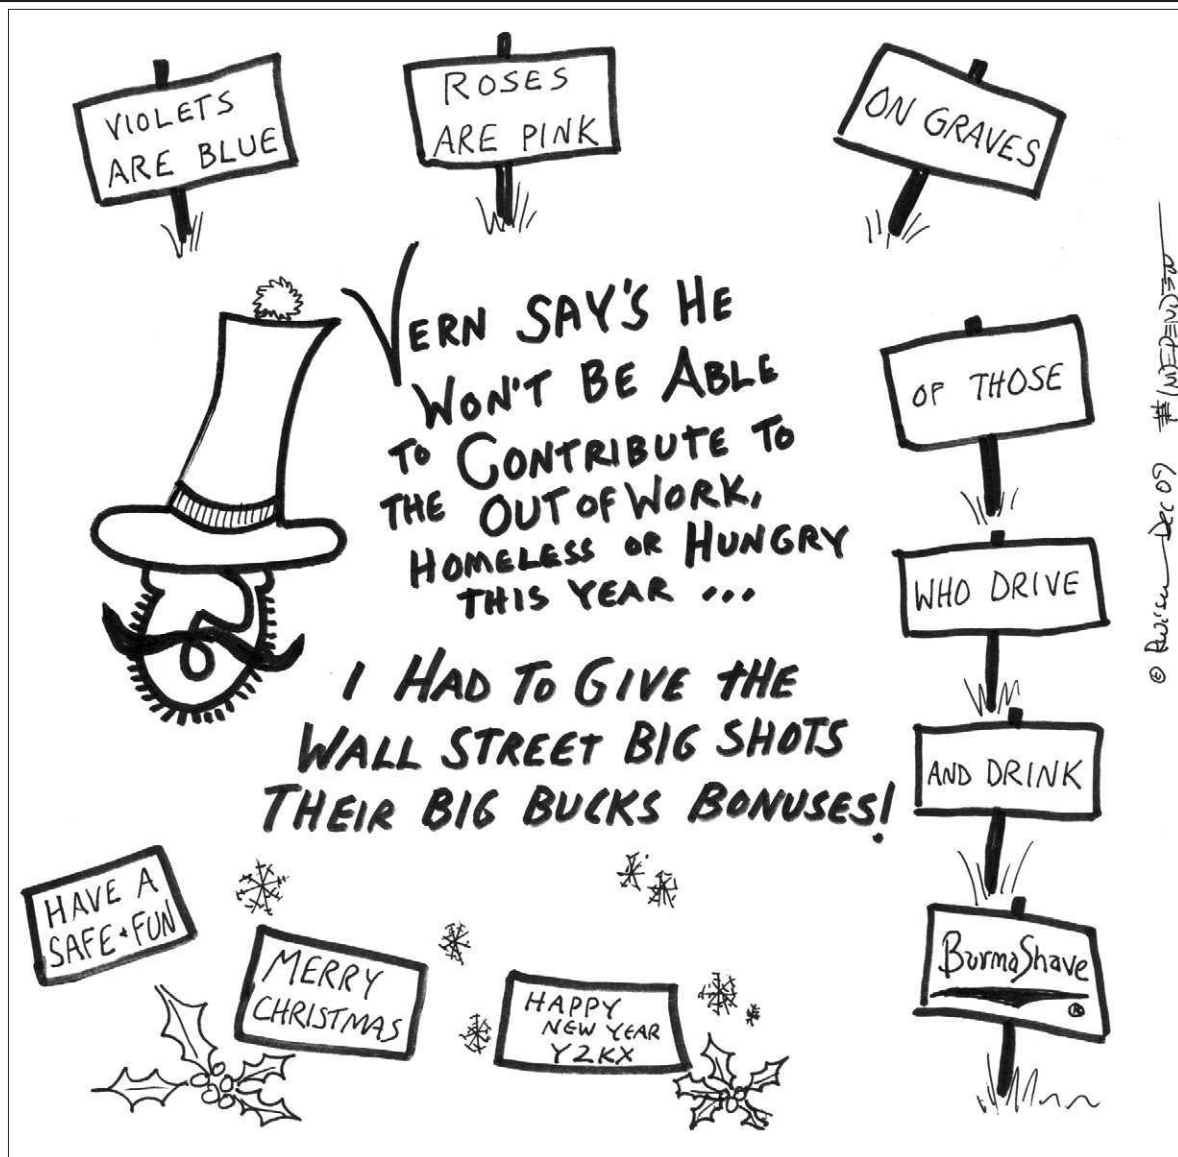 VIOLETS
ARE BLUE
ROSES
ARE PINK
ON GRAVES
OF THOSE
WHO DRIVE
AND DRINK
BurmaShave
®
VERN SAY'S HE
WON'T BE ABLE
TO CONTRIBUTE TO
THE OUT OF WORK,
HOMELESS OR HUNGRY
THIS YEAR ...
I HAD TO GIVE THE
WALL STREET BIG SHOTS
THEIR BIG BUCKS BONUSES!
HAVE A
SAFE + FUN
MERRY
CHRISTMAS
HAPPY
NEW YEAR
Y2KX
© Dec 09